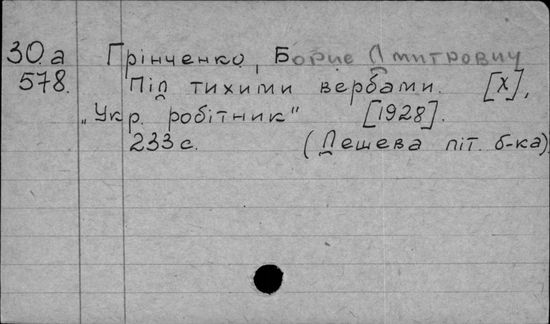 30а Грінченко, Борис Дмитрович
578. Під тихими вербами. [Х],
„Укр. робітник" [1928].
233 с. (Дешева літ. б-ка)